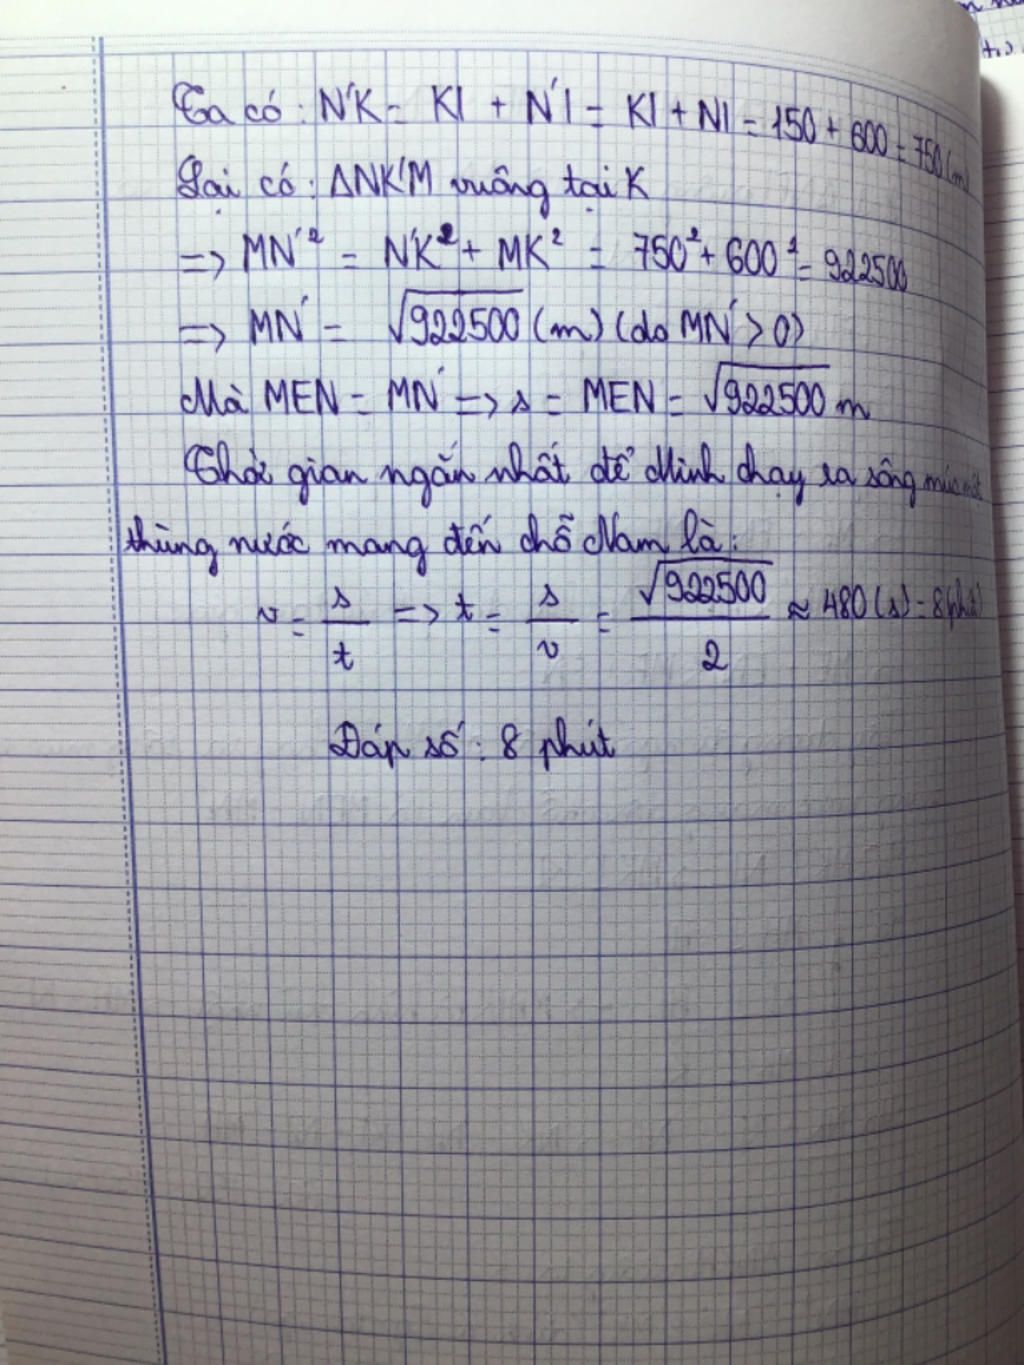 Ta có: N'K = KI + N'I = KI + NI = 150 + 600 = 750 (m)
Lại có: ΔNK'M vuông tại K
=> MN'² = N'K² + MK² = 750² + 600² = 922500
=> MN' = √922500 (m) (do MN' > 0)
Mà MEN = MN' => s = MEN = √922500 m
Thời gian ngắn nhất để Minh chạy ra sông múc một
thùng nước mang đến chỗ Nam là:
v = s/t => t = s/v = √922500/2 ≈ 480 (s) = 8 (phút)
Đáp số: 8 phút